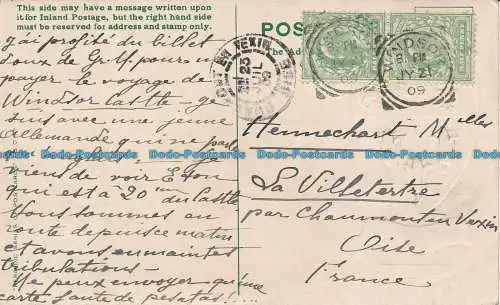 This side may have a message written upon
it for Inland Postage, but the right hand side
must be reserved for address and stamp only.
POS
The Ad
j'ai profité du billet
doux de pour me
payer le voyage de
Windsor Castle. Je
suis avec une jeune
Allemande qui ne parle
pas
viens de voir Eton
qui est à 20m du Castle
Nous sommes en
route depuis ce matin
et avons eu maintes
tribulations.
Ne peux envoyer qu'une
carte faute de pesetas!...
WINDSOR
PM
JY 21
09
CHAUMONT EN VEXIN
23
JUIL
09
OISE
Hennechart Melles
La Villetertre
par Chaumont en Vexin
Oise
France
Dodo-Postcards Dodo-Postcards Dodo-Postcards Dodo-Postcards Dodo-Postcards Dodo-Postcards